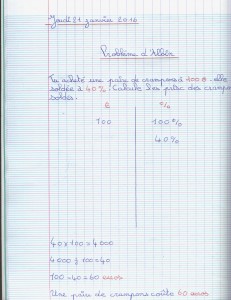 Jeudi 21 janvier 2016
Problème d'Alben
Tu acheté une paire de crampons à 100€. elle
soldée à 40%. Calcule les prix des crampons
soldés.
€ %
100 100%
40%
40 x 100 = 4 000
4000 ÷ 100 = 40
100 - 40 = 60 euros
Une paire de crampons coûte 60 euros